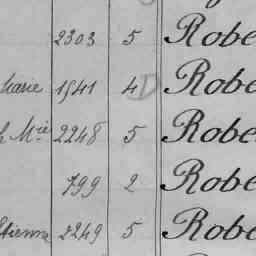 2303 5 Robe
Marie 1541 4 D Robe
h Mie 2248 5 Robe
799 2 Robe
Etienne 2249 5 Robe